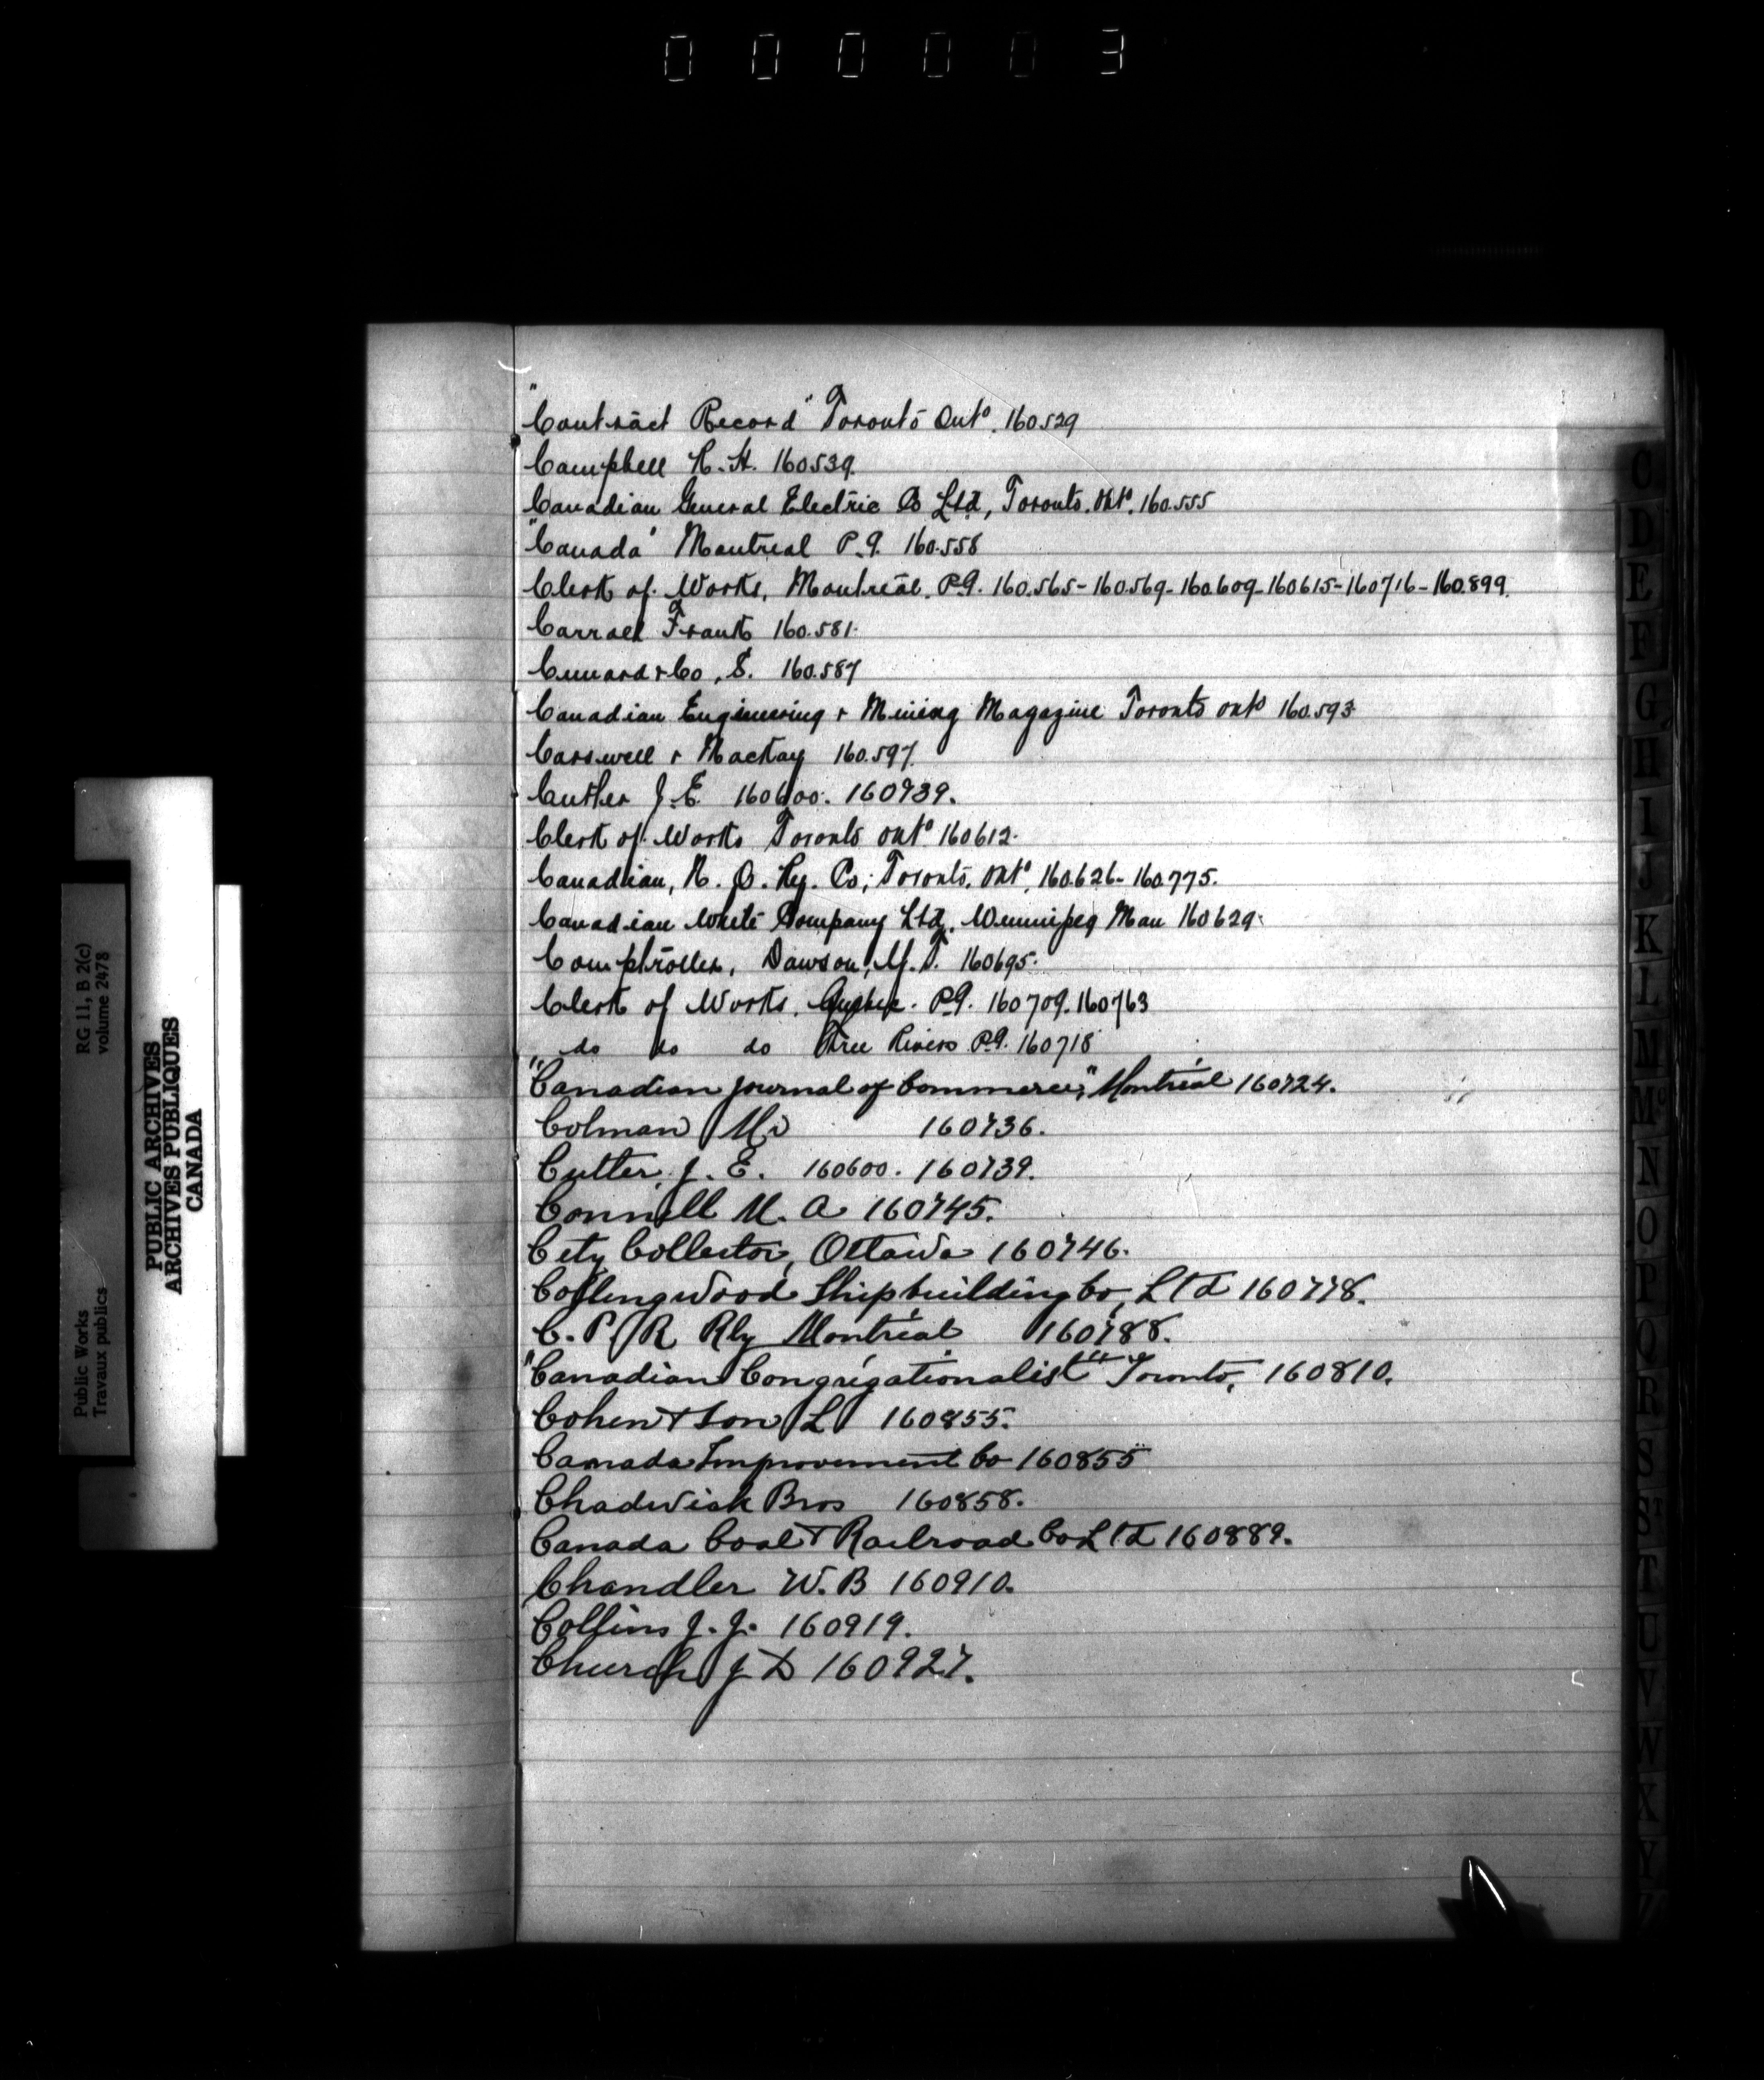 000003
"Contract Record" Toronto Ont°. 160529
Campbell R. H. 160539.
Canadian General Electric Co Ltd, Toronto. Ont°. 160.555
"Canada" Montreal P.Q. 160.558
Clerk of Works, Montreal. P.Q. 160.565-160.569-160609-160615-160716-160.899.
Carroll Frank 160.581.
Cunard & Co, S. 160.587
Canadian Engineering & Mining Magazine Toronto Ont° 160.593
Carswell & Mackay 160.597.
Cutler J.E. 160600. 160739.
Clerk of Works Toronto Ont° 160612.
Canadian, N. O. Ry. Co; Toronto. Ont°. 160626-160.775.
Canadian White Company Ltd. Winnipeg Man 160629.
Comptroller, Dawson, Y.T. 160695.
Clerk of Works. Quebec. P.Q. 160709. 160763
do do do Three Rivers P.Q. 160718
"Canadian Journal of Commerce," Montréal 160724.
Colman Mr 160736.
Cutler, J. E. 160600. 160739.
Connell M. A 160745.
City Collector, Ottawa 160746.
Collingwood Shipbuilding Co, Ltd 160778.
C. P. R Rly Montréal 160788.
"Canadian Congrégationalist" Toronto, 160810.
Cohen & Son L 160855.
Canada Improvement Co 160855
Chadwick Bros 160858.
Canada Coal & Railroad Co Ltd 160889.
Chandler W. B 160910.
Collins J. J. 160919.
Church J D 160927.
C
D
E
F
G
H
I
J
K
L
M
Mc
N
O
P
Q
R
S
ST
T
U
V
W
X
Y
RG 11, B 2(c)
volume 2478
Public Works
Travaux publics
PUBLIC ARCHIVES
ARCHIVES PUBLIQUES
CANADA